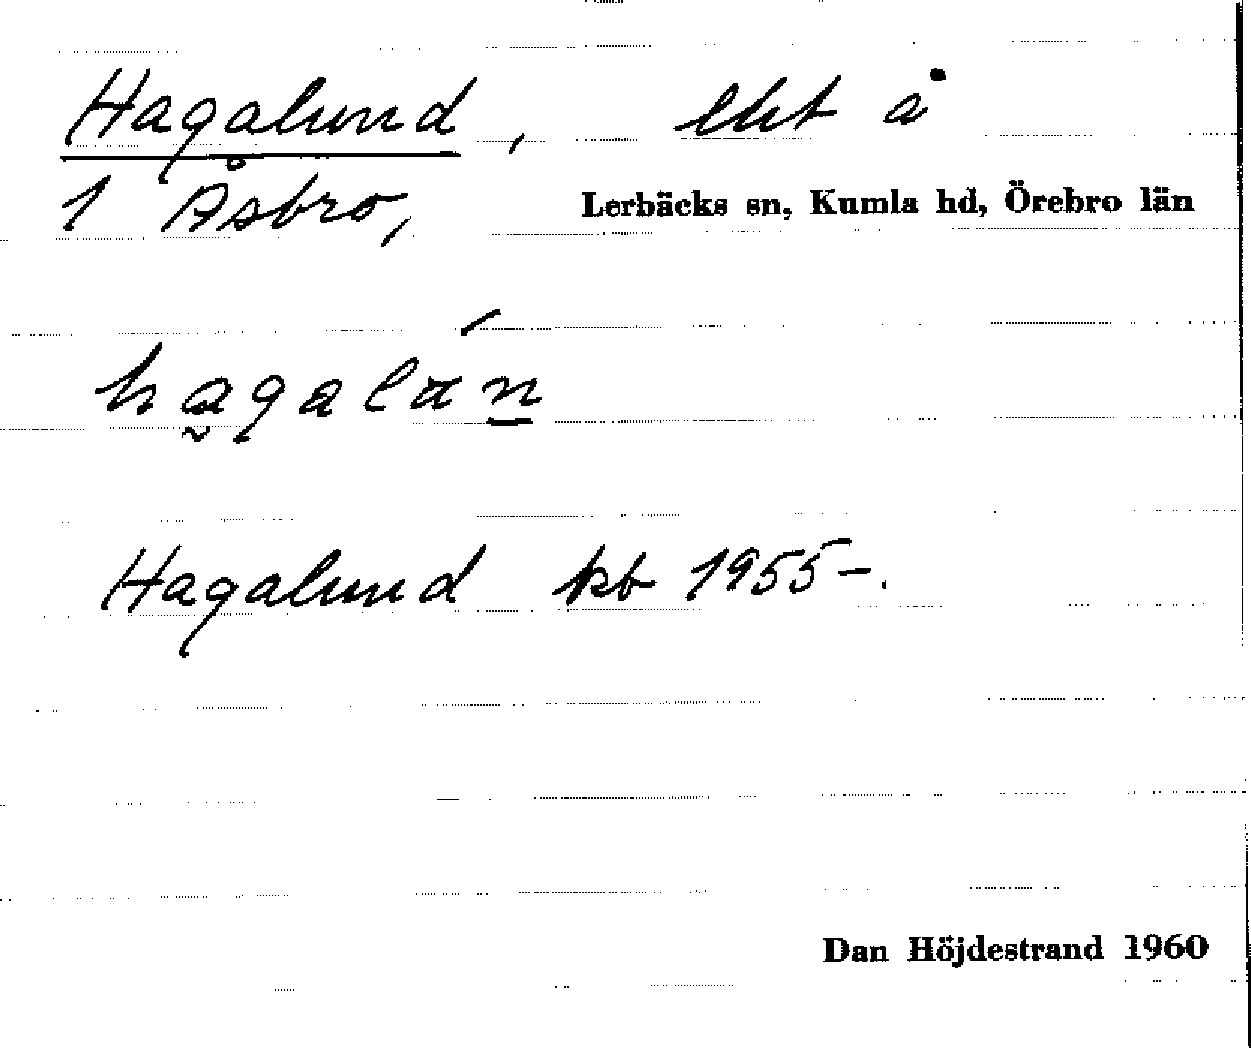 Hagalund, lht å
1 Åsbro, Lerbäcks sn, Kumla hd, Örebro län
hagalán
Hagalund kb 1955-.
Dan Höjdestrand 1960